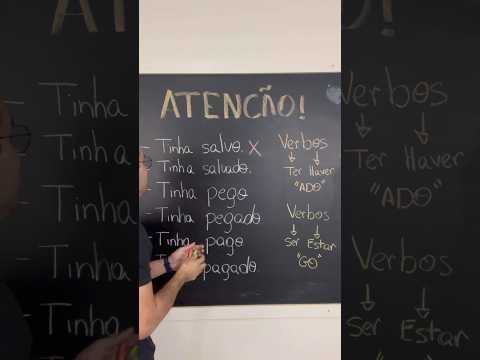 ATENCÃO!
- Tinha salvo. X
- Tinha salvado.
- Tinha pego
- Tinha pegado
- Tinha pago
pagado.
Verbos
Ter Haver
"ADO"
Verbos
Ser Estar
"GO"